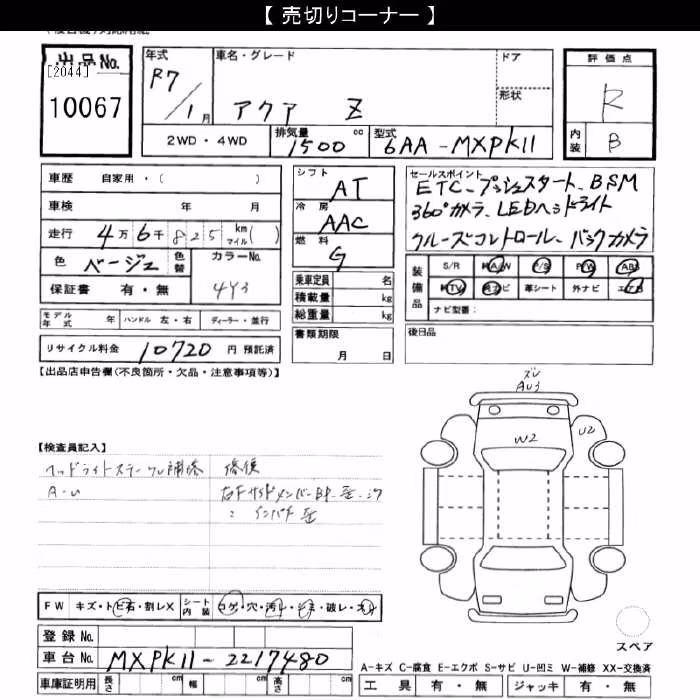 【 売切りコーナー 】
出品No.
[2044]
10067
年式
R7/1月
車名・グレード
アクア Z
ドア
形状
評価点
R
内装 B
2WD・4WD
排気量 1500 cc
型式 6AA-MXPK11
車歴 自家用・( )
車検 年 月
走行 4万6千825 km マイル( )
色 ベージュ 色替 カラーNo. 4Y3
保証書 有・無
シフト AT
冷房 AAC
燃料 G
乗車定員 名
積載量 kg
総重量 kg
セールスポイント
ETC、プッシュスタート、BSM
360°カメラ、LEDヘッドライト
クルーズコントロール、バックカメラ
装備品 S/R 純A/W P/S P/W ABS
純TV 純ナビ 革シート 外ナビ エアB
ナビ型番:
モデル年式 年 ハンドル 左・右 ディーラー・並行
リサイクル料金 10720 円 預託済
書類期限
月 日
後日品
【出品店申告欄(不良箇所・欠品・注意事項等)】
ズレ
AU3
W2
U2
【検査員記入】
修復
A-U
FW キズ・トビ石・割レX シート内装 コゲ・穴・汚レ・シミ・破レ・スレ
登録No.
車台No. MXPK11-2217480
車庫証明用 長さ cm 幅 cm 高さ cm
スペア
A-キズ C-腐食 E-エクボ S-サビ U-凹ミ W-補修 XX-交換済
工具 有・無 ジャッキ 有・無